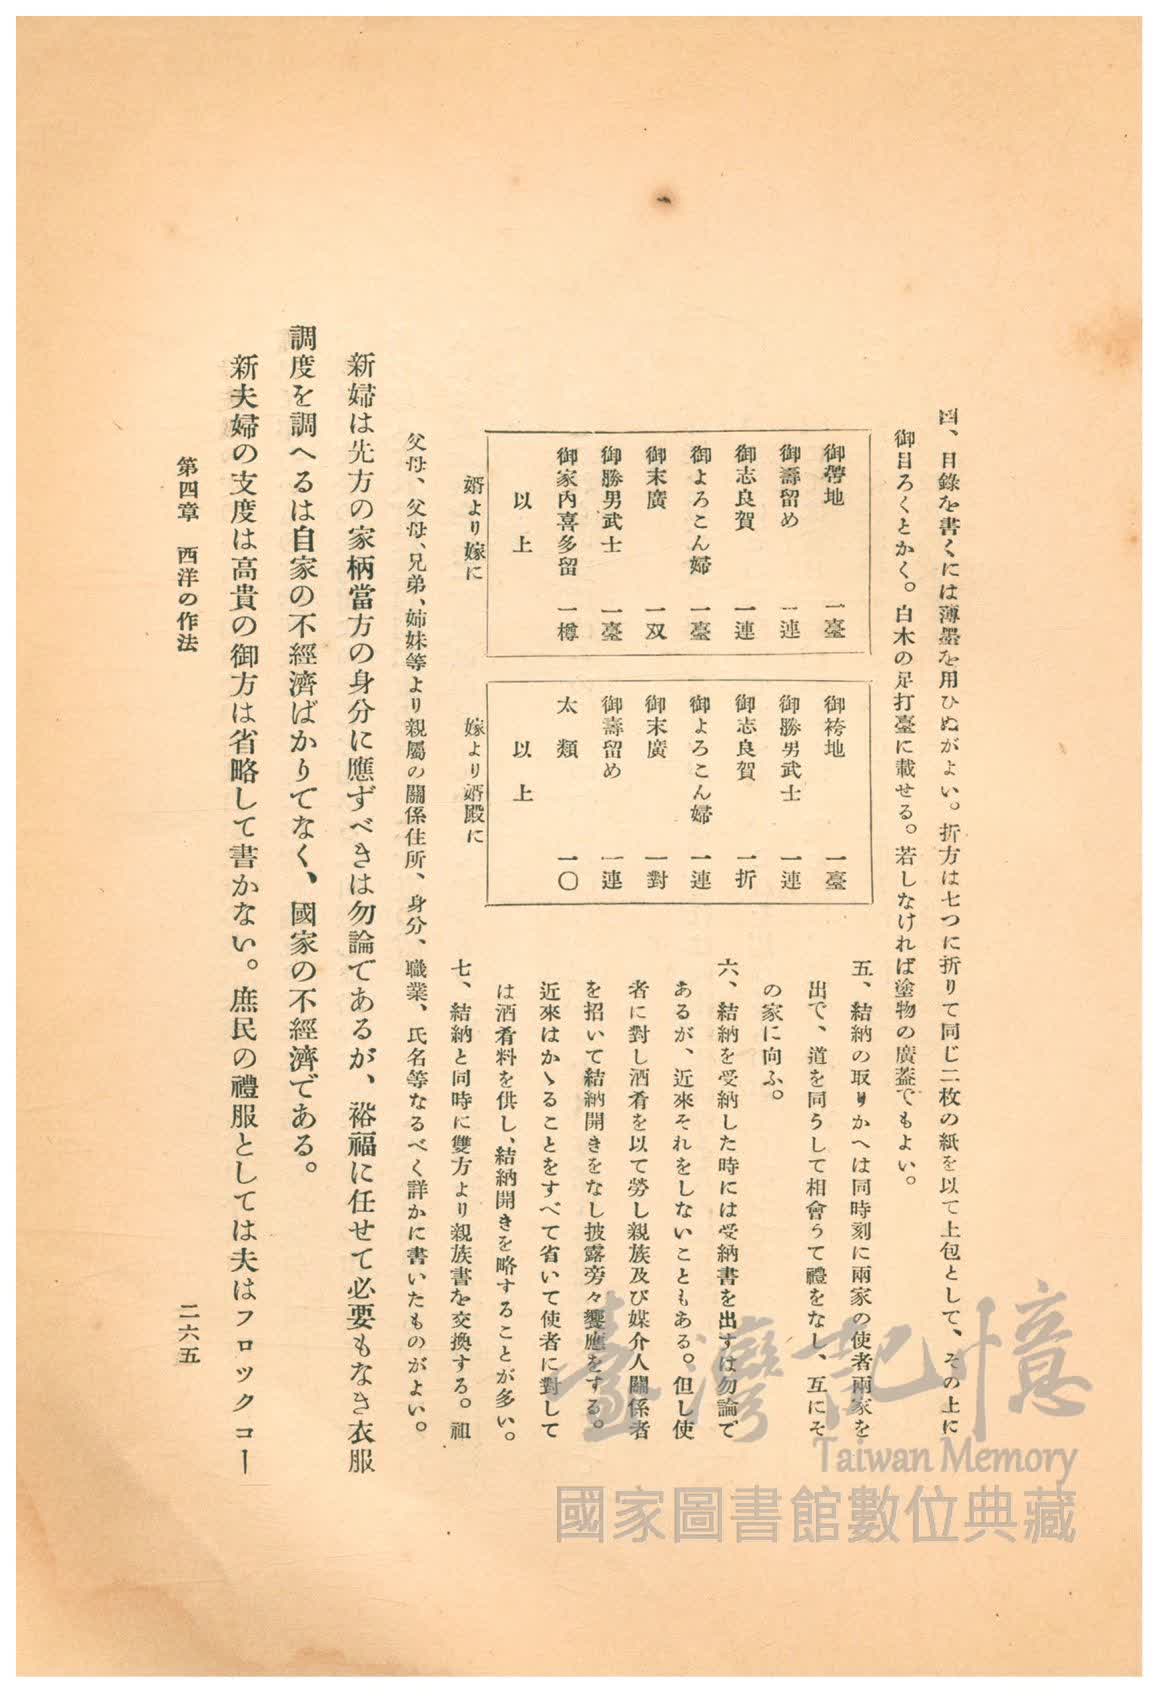 四、目錄を書くには薄墨を用ひぬがよい。折方は七つに折りて同じ二枚の紙を以て上包として、その上に
御目ろくとかく。白木の足打臺に載せる。若しなければ塗物の廣蓋でもよい。
御帶地　一臺
御壽留め　一連
御志良賀　一連
御よろこん婦　一臺
御末廣　一双
御勝男武士　一臺
御家内喜多留　一樽
以上
婿より嫁に
御袴地　一臺
御勝男武士　一連
御志良賀　一折
御よろこん婦　一連
御末廣　一對
御壽留め　一連
太類　一〇
以上
嫁より婿殿に
五、結納の取りかへは同時刻に兩家の使者兩家を
出で、道を同うして相會うて禮をなし、互にそ
の家に向ふ。
六、結納を受納した時には受納書を出すは勿論で
あるが、近來それをしないこともある。但し使
者に對し酒肴を以て勞し親族及び媒介人關係者
を招いて結納開きをなし披露旁々饗應をする。
近來はかゝることをすべて省いて使者に對して
は酒肴料を供し、結納開きを略することが多い。
七、結納と同時に雙方より親族書を交換する。祖
父母、父母、兄弟、姉妹等より親屬の關係住所、身分、職業、氏名等なるべく詳かに書いたものがよい。
新婦は先方の家柄當方の身分に應ずべきは勿論であるが、裕福に任せて必要もなき衣服
調度を調へるは自家の不經濟ばかりでなく、國家の不經濟である。
新夫婦の支度は高貴の御方は省略して書かない。庶民の禮服としては夫はフロックコー
第四章　西洋の作法
二六五
臺灣記憶
Taiwan Memory
國家圖書館數位典藏